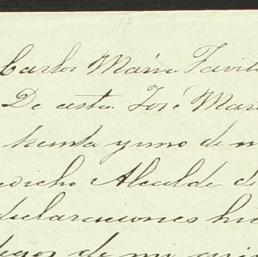 Carlos María Favila
De esta José Marí
treinta y uno de m
edicho Alcalde de
declaraciones hi